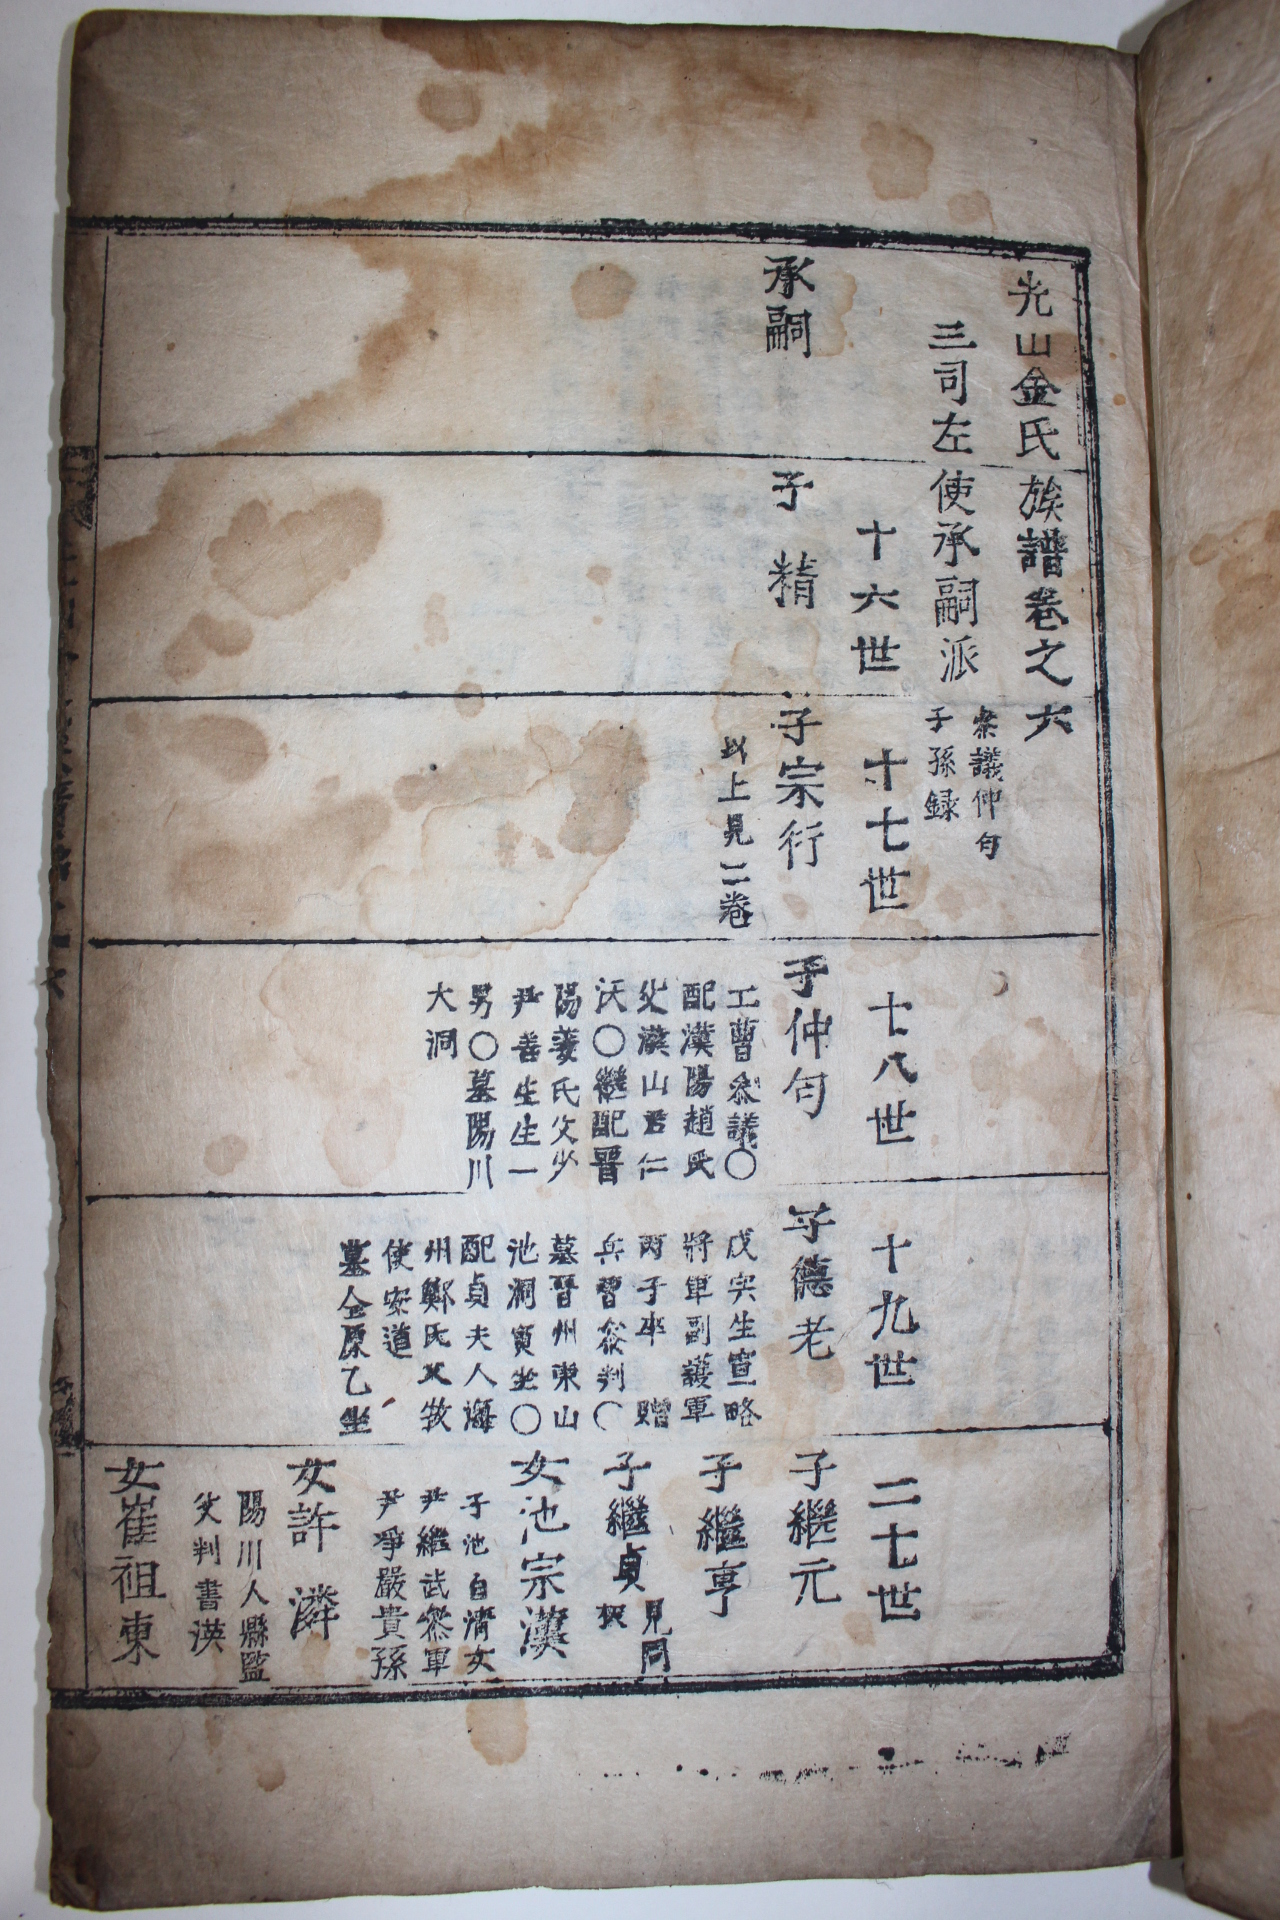 光山金氏族譜卷之六
三司左使承嗣派
叅議仲勻
子孫録
十六世
十七世
十八世
十九世
二十世
承嗣
子精
子宗衍
以上見二卷
子仲勻
工曹叅議〇
配漢陽趙氏
父漢山君仁
沃〇繼配晋
陽姜氏父少
尹善生生一
男〇墓陽川
大洞
子德老
戊寅生宣略
將軍副護軍
丙子卒 贈
兵曹叅判〇
墓晋州東山
池洞寅坐〇
配貞夫人海
州鄭氏父牧
使安道
墓金原乙坐
子繼元
子繼亨
子繼貞
見同
板
女池宗漢
子池自淸女
尹繼武叅軍
尹凈嚴貴孫
女許潾
陽川人縣監
父判書漢
女崔祖東